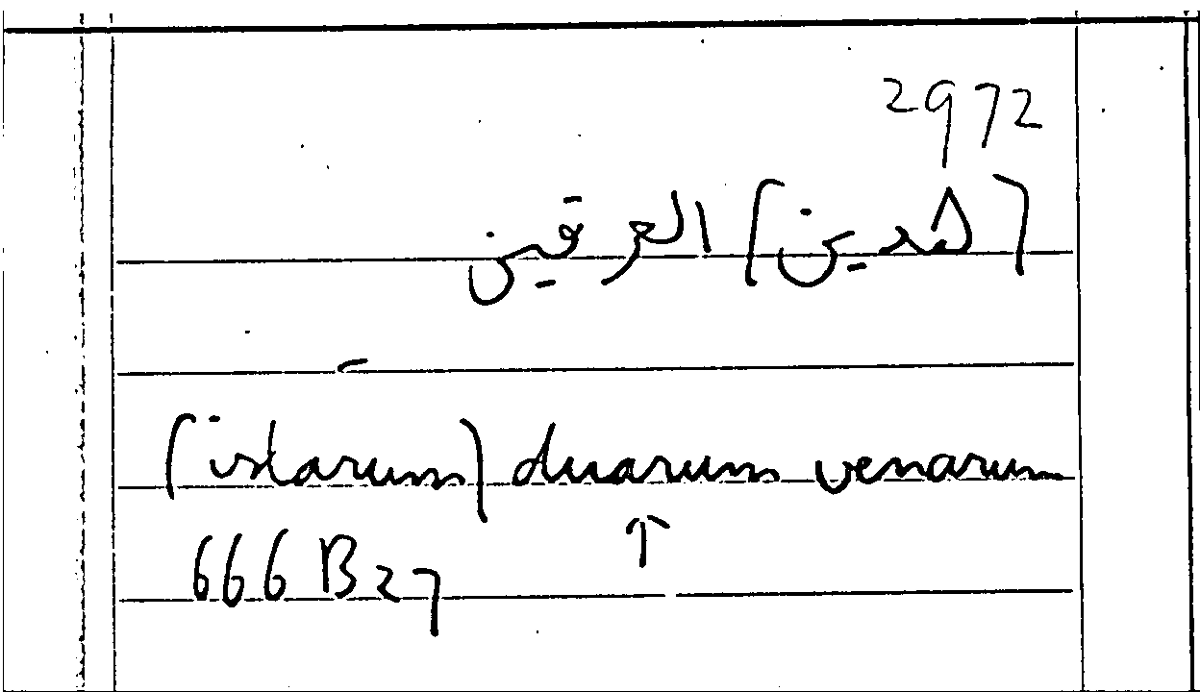 2972
(هذين) العرقين
(istarum) duarum venarum
↑
666 B27